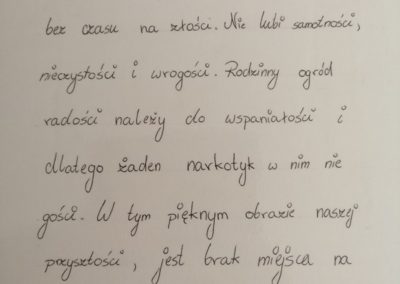 bez czasu na złości. Nie lubi samotności,
nieczystości i wrogości. Rodzinny ogród
radości należy do wspaniałości i
dlatego żaden narkotyk w nim nie
gości. W tym pięknym obrazie naszej
przyszłości, jest brak miejsca na